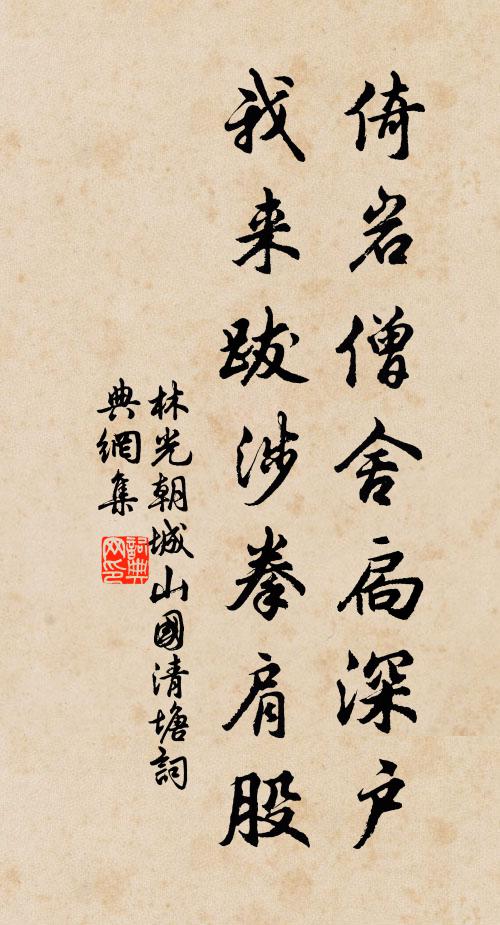 倚岩僧舍扃深户
我来跋涉拳肩股
林光朝城山國清塘詞
典網集
詞典
网印